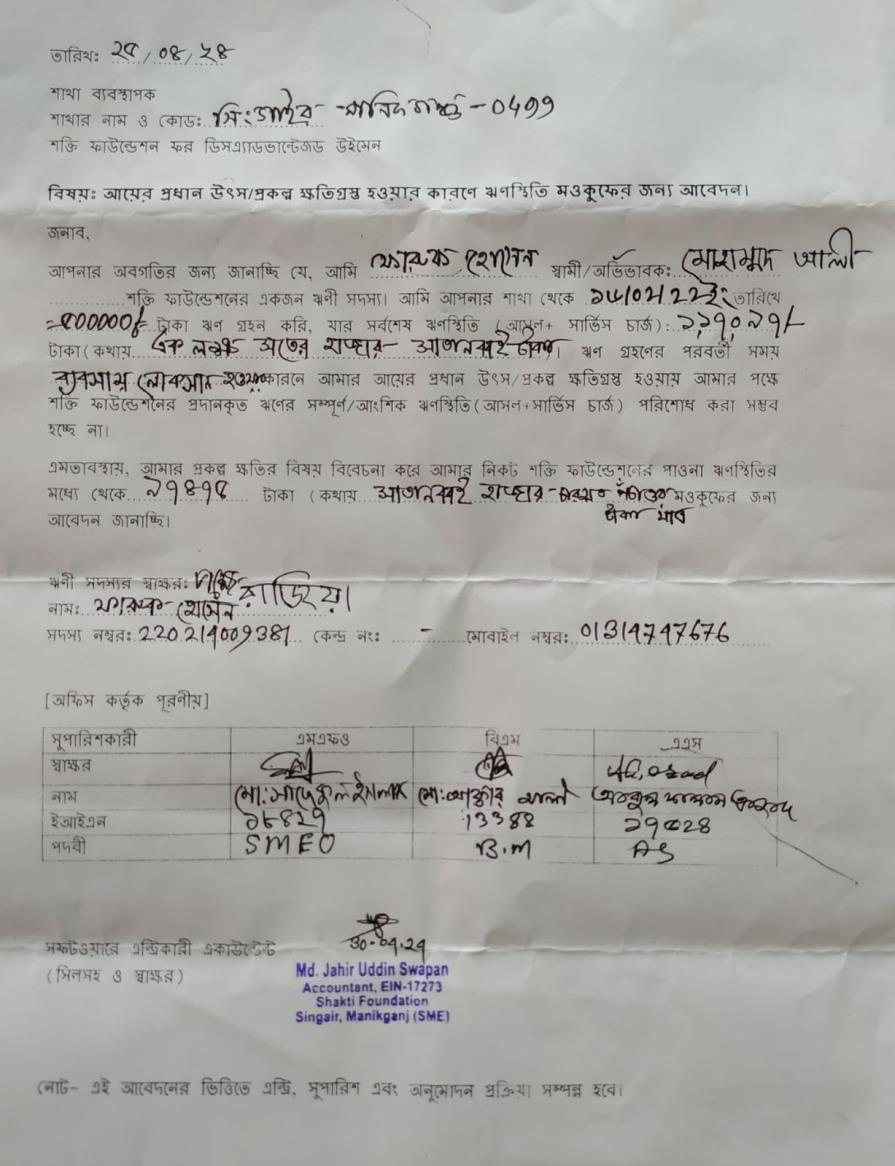 তারিখ: ২৫/০৪/২৪
শাখা ব্যবস্থাপক
শাখার নাম ও কোড: সিংগাইর - মানিকগঞ্জ - 0499
শক্তি ফাউন্ডেশন ফর ডিসএ্যাডভান্টেজড উইমেন
বিষয়: আয়ের প্রধান উৎস/প্রকল্প ক্ষতিগ্রস্ত হওয়ার কারণে ঋণস্থিতি মওকুফের জন্য আবেদন।
জনাব,
আপনার অবগতির জন্য জানাচ্ছি যে, আমি ফারুক হোসেন স্বামী/অভিভাবক: মোহাম্মদ আলী
শক্তি ফাউন্ডেশনের একজন ঋণী সদস্য। আমি আপনার শাখা থেকে ১৫/০২/22ইং তারিখে
২০০০০০/- টাকা ঋণ গ্রহন করি, যার সর্বশেষ ঋণস্থিতি (আসল+ সার্ভিস চার্জ):
টাকা (কথায় এক লক্ষ সতের হাজার সাতানব্বই টাকা। ঋণ গ্রহণের পরবর্তী সময়
ব্যবসায় লোকসান হওয়ার কারনে আমার আয়ের প্রধান উৎস/প্রকল্প ক্ষতিগ্রস্ত হওয়ায় আমার পক্ষে
শক্তি ফাউন্ডেশনের প্রদানকৃত ঋণের সম্পূর্ণ/আংশিক ঋণস্থিতি (আসল+সার্ভিস চার্জ) পরিশোধ করা সম্ভব
হচ্ছে না।
এমতাবস্থায়, আমার প্রকল্প ক্ষতির বিষয় বিবেচনা করে আমার নিকট শক্তি ফাউন্ডেশনের পাওনা ঋণস্থিতির
মধ্যে থেকে ৯৭৪৭৫ টাকা (কথায় সাতানব্বই হাজার চারশত পঁচাত্তর মওকুফের জন্য
টাকা মাত্র
আবেদন জানাচ্ছি।
ঋণী সদস্যর স্বাক্ষর: পক্ষে রাজিয়া
নাম: ফারুক হোসেন
সদস্য নম্বর: 220214009381 কেন্দ্র নং: - মোবাইল নম্বর: 01314747676
[অফিস কর্তৃক পূরণীয়]
সুপারিশকারী এমএফও বিএম এএস
স্বাক্ষর
নাম মো: সাদেকুল ইসলাম মো: আক্তার
ইআইএন ১৮৪২৭ 13388
পদবী SMEO B.M AS
30-04-24
সফটওয়ারে এন্ট্রিকারী একাউন্টেন্ট
(সিলসহ ও স্বাক্ষর)
Md. Jahir Uddin Swapan
Accountant, EIN-17273
Shakti Foundation
Singair, Manikganj (SME)
নোট- এই আবেদনের ভিত্তিতে এন্ট্রি, সুপারিশ এবং অনুমোদন প্রক্রিয়া সম্পন্ন হবে।